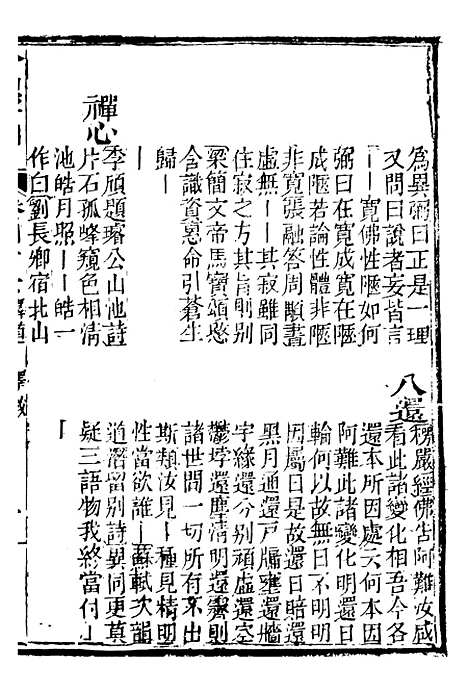 為異弼曰正是一理
又問曰說者妄皆言
丨丨寛佛性隘如何
弼曰在寛成寛在隘
成隘若論性體非隘
非寛張融答周顒書
虛無丨丨其寂雖同
住寂之方其旨則别
梁簡文帝馬寶頌愍
含識資惠命引蒼生
歸丨丨
禪心 李頎題璿公山池詩
片石孤峰窺色相清
池皓月照丨丨皓一
作白劉長卿宿北山
八還 楞嚴經佛告阿難汝咸
看此諸變化相吾今各
還本所因處云何本因
阿難此諸變化明還日
輪何以故無日不明明
因屬日是故還日暗還
黑月通還戸牖壅還牆
宇緣還分别頑虛還空
鬱𡋯還塵清明還霽則
諸世間一切所有不出
斯類汝見丨種見精明
性當欲誰丨蘇軾次韻
道潛留别詩異同更莫
疑三語物我終當付丨
丨